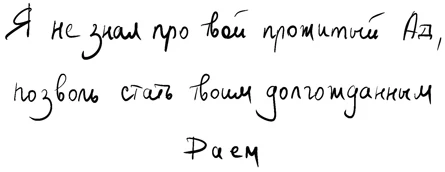 Я не знал про твой прожитый Ад,
позволь стать твоим долгожданным
Раем